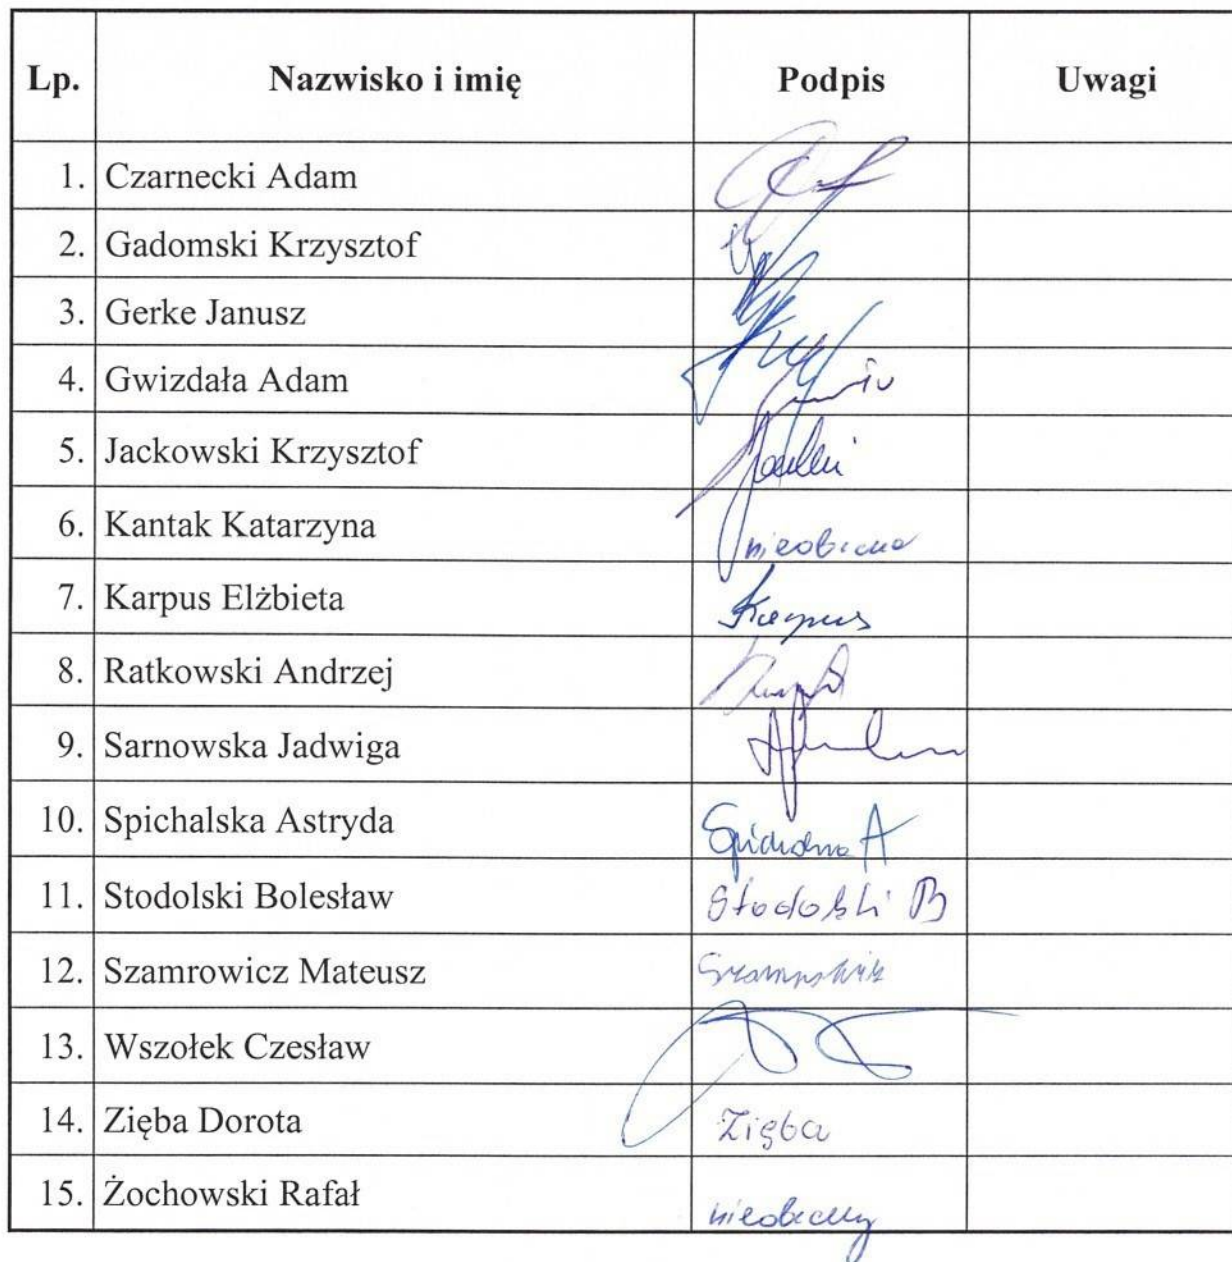 Lp. Nazwisko i imię Podpis Uwagi
1. Czarnecki Adam
2. Gadomski Krzysztof
3. Gerke Janusz
4. Gwizdała Adam
5. Jackowski Krzysztof
6. Kantak Katarzyna nieobecna
7. Karpus Elżbieta Karpus
8. Ratkowski Andrzej
9. Sarnowska Jadwiga
10. Spichalska Astryda
11. Stodolski Bolesław Stodolski B
12. Szamrowicz Mateusz
13. Wszołek Czesław
14. Zięba Dorota Zięba
15. Żochowski Rafał nieobecny